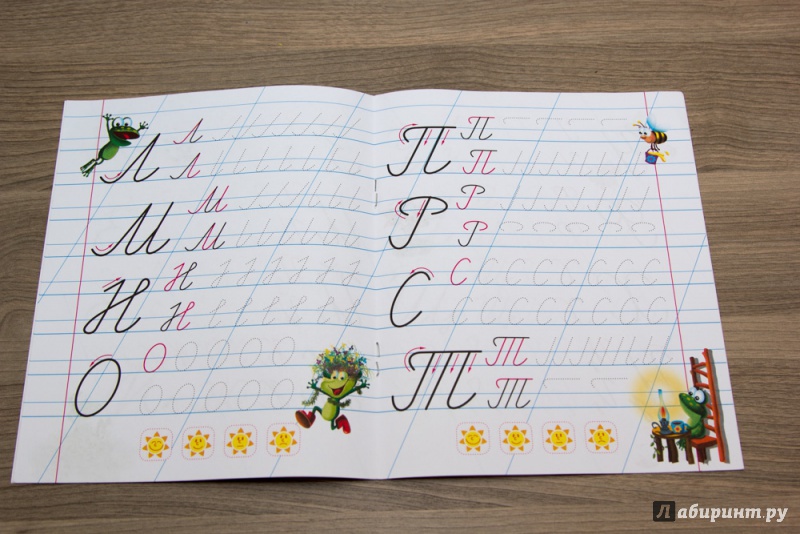 Л Л
Л
М М
М
Н Н
Н
О О О О О О
О О О О О
П П
П
Р Р
Р
С С С С С С С С С
С С С С С С С С
Т Т
Т
Лабиринт.ру